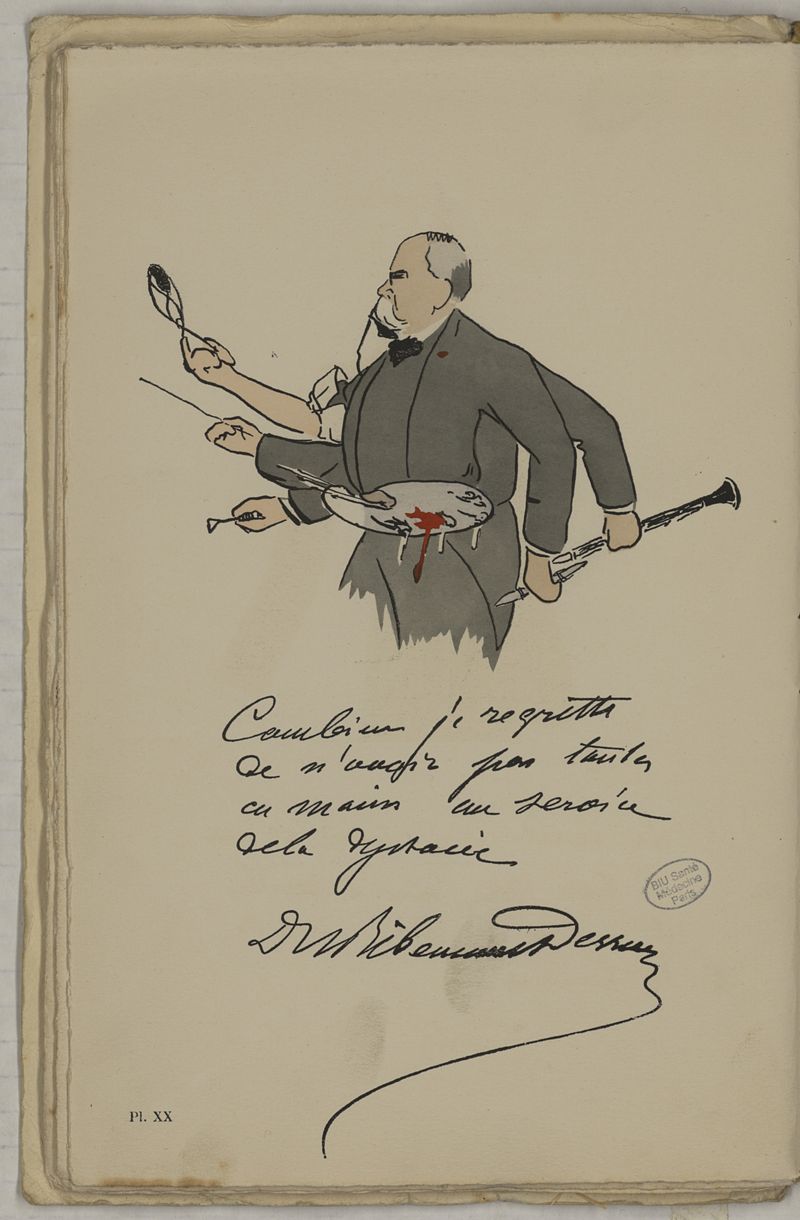 Combien je regrette
de n'avoir pas toutes
ces mains au service
de la dystocie
Dr Ribemont Dessaignes
BIU Santé
Médecine
Paris
Pl. XX